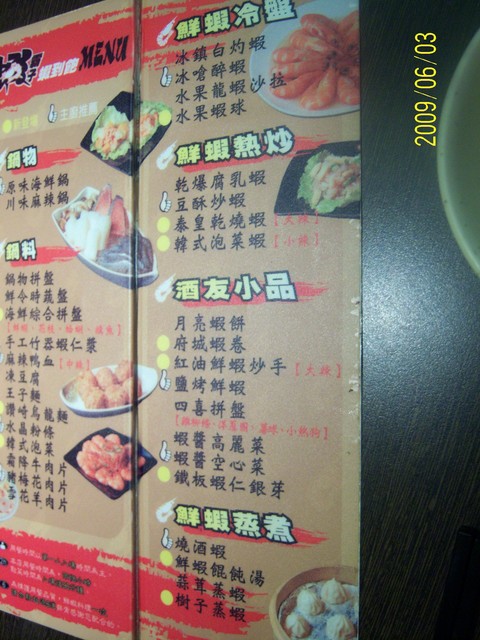 蝦到飽 MENU
新登場 主廚推薦
鍋物
原味海鮮鍋
川味麻辣鍋
鍋料
鍋物拼盤
鮮令時蔬盤
海鮮綜合拼盤
手工竹器蝦仁漿
麻辣鴨血【中辣】
凍豆腐
王子麵
讚岐烏龍麵
水晶粉條
韓式泡菜
霜降牛肉片
豬梅花肉片
雪花羊肉片
鮮蝦冷盤
冰鎮白灼蝦
冰嗆醉蝦
水果龍蝦沙拉
水果蝦球
鮮蝦熱炒
乾爆腐乳蝦
豆酥炒蝦
泰皇乾燒蝦【大辣】
韓式泡菜蝦【小辣】
酒友小品
月亮蝦餅
府城蝦卷
紅油鮮蝦炒手【大辣】
鹽烤鮮蝦
四喜拼盤
【雞柳條、洋蔥圈、薯球、小熱狗】
蝦醬高麗菜
蝦醬空心菜
鐵板蝦仁銀芽
鮮蝦蒸煮
燒酒蝦
鮮蝦餛飩湯
蒜茸蒸蝦
樹子蒸蝦
2009/06/03